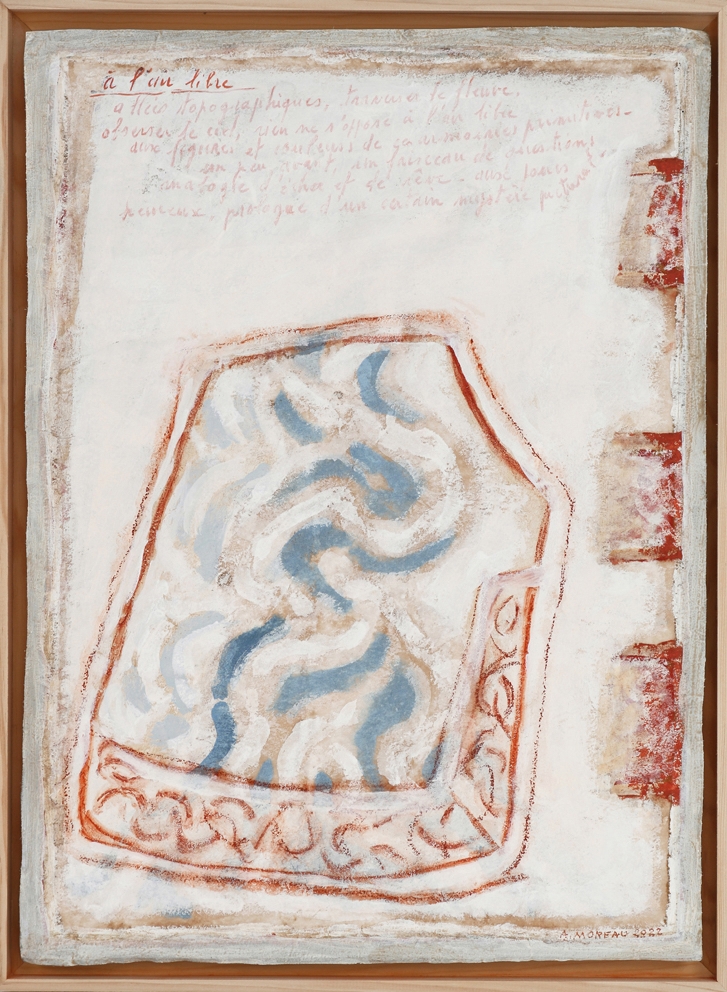 à l'air libre
allées topographiques, traverser le fleuve,
observer le ciel, rien ne s'oppose à l'air libre
aux figures et couleurs de ces mosaïques primitives
un peu avant, un faisceau de questions
analogie d'échos et de rêve aux jours
heureux, prologue d'un certain mystère pictural
A. MOREAU 2022